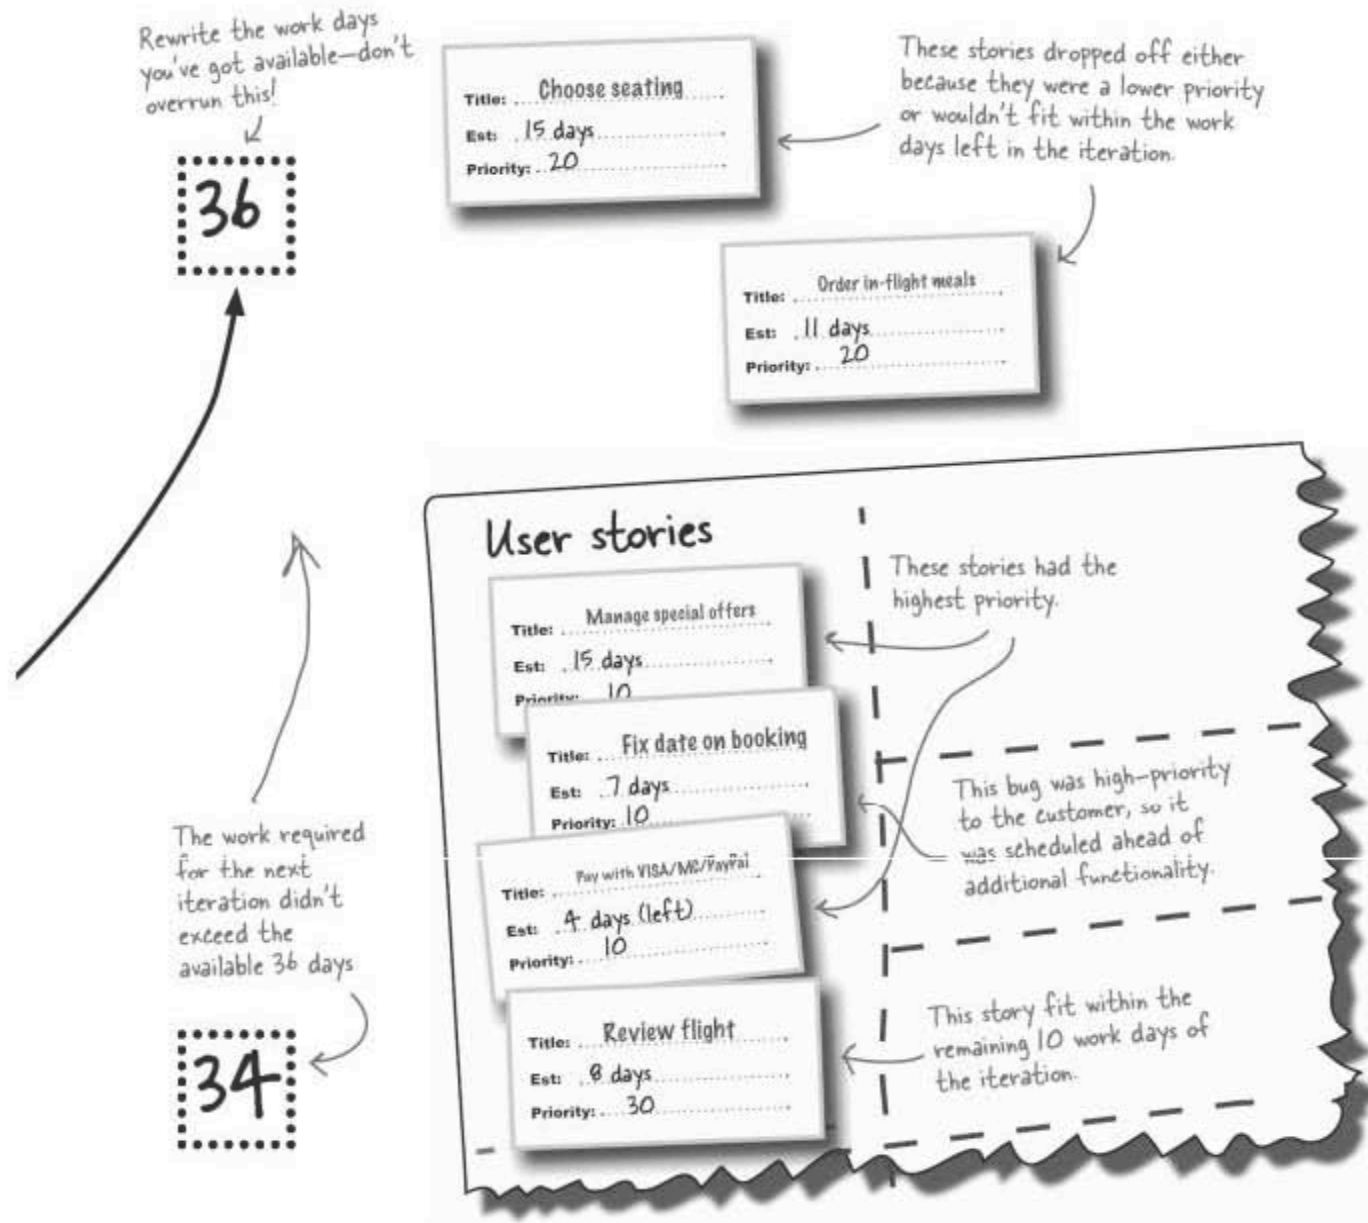 Rewrite the work days
you've got available—don't
overrun this!
36
Title: Choose seating
Est: 15 days
Priority: 20
These stories dropped off either
because they were a lower priority
or wouldn't fit within the work
days left in the iteration.
Title: Order in-flight meals
Est: 11 days
Priority: 20
User stories
Title: Manage special offers
Est: 15 days
Priority: 10
These stories had the
highest priority.
Title: Fix date on booking
Est: 7 days
Priority: 10
This bug was high-priority
to the customer, so it
was scheduled ahead of
additional functionality.
Title: Pay with VISA/MC/PayPal
Est: 4 days (left)
Priority: 10
The work required
for the next
iteration didn't
exceed the
available 36 days
34
Title: Review flight
Est: 8 days
Priority: 30
This story fit within the
remaining 10 work days of
the iteration.